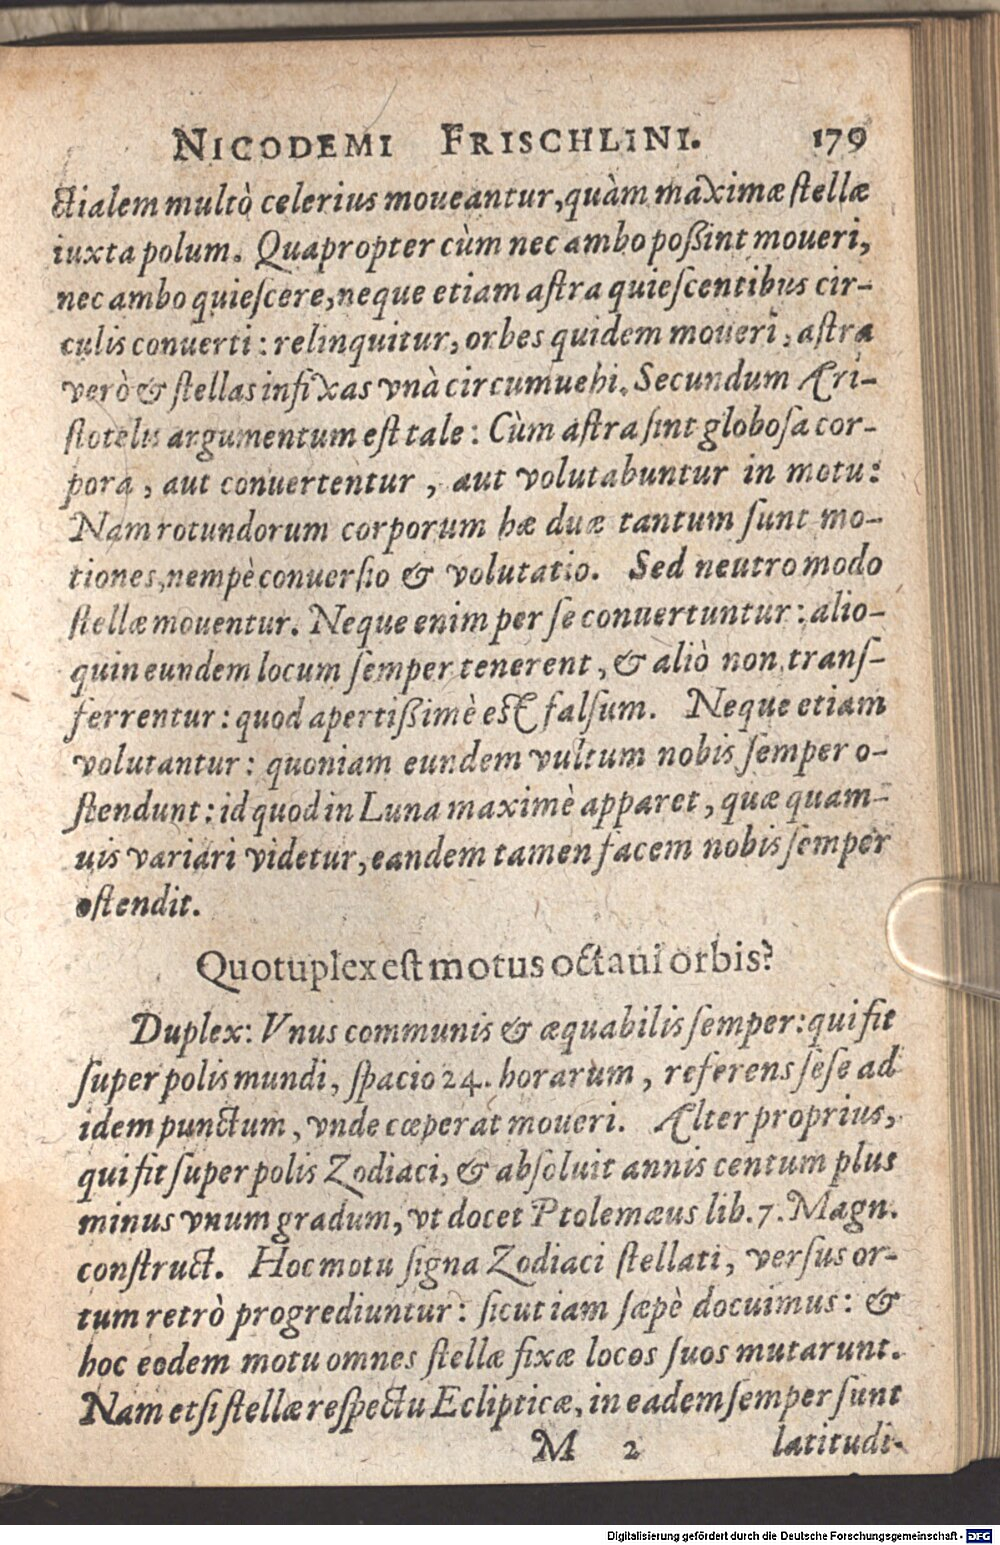 NICODEMI FRISCHLINI. 179
ctialem multò celerius moueantur, quàm maximæ stellæ
iuxta polum. Quapropter cùm nec ambo poßint moueri,
nec ambo quiescere, neque etiam astra quiescentibus cir-
culis conuerti: relinquitur, orbes quidem moueri, astra
verò & stellas infixas vnà circumuehi. Secundum Ari-
stotelis argumentum est tale: Cùm astra sint globosa cor-
pora, aut conuertentur, aut volutabuntur in motu:
Nam rotundorum corporum hæ duæ tantum sunt mo-
tiones, nempè conuersio & volutatio. Sed neutro modo
stellæ mouentur. Neque enim per se conuertuntur: alio-
quin eundem locum semper tenerent, & aliò non trans-
ferrentur: quod apertißimè est falsum. Neque etiam
volutantur: quoniam eundem vultum nobis semper o-
stendunt: id quod in Luna maximè apparet, quæ quam-
uis variari videtur, eandem tamen facem nobis semper
ostendit.
Quotuplex est motus octaui orbis?
Duplex: Vnus communis & æquabilis semper: qui fit
super polis mundi, spacio 24. horarum, referens sese ad
idem punctum, vnde cœperat moueri. Alter proprius,
qui fit super polis Zodiaci, & absoluit annis centum plus
minus vnum gradum, vt docet Ptolemæus lib. 7. Magn.
construct. Hoc motu signa Zodiaci stellati, versus or-
tum retrò progrediuntur: sicut iam sæpè docuimus: &
hoc eodem motu omnes stellæ fixæ locos suos mutarunt.
Nam etsi stellæ respectu Eclipticæ, in eadem semper sunt
M 2 latitudi-
Digitalisierung gefördert durch die Deutsche Forschungsgemeinschaft - DFG